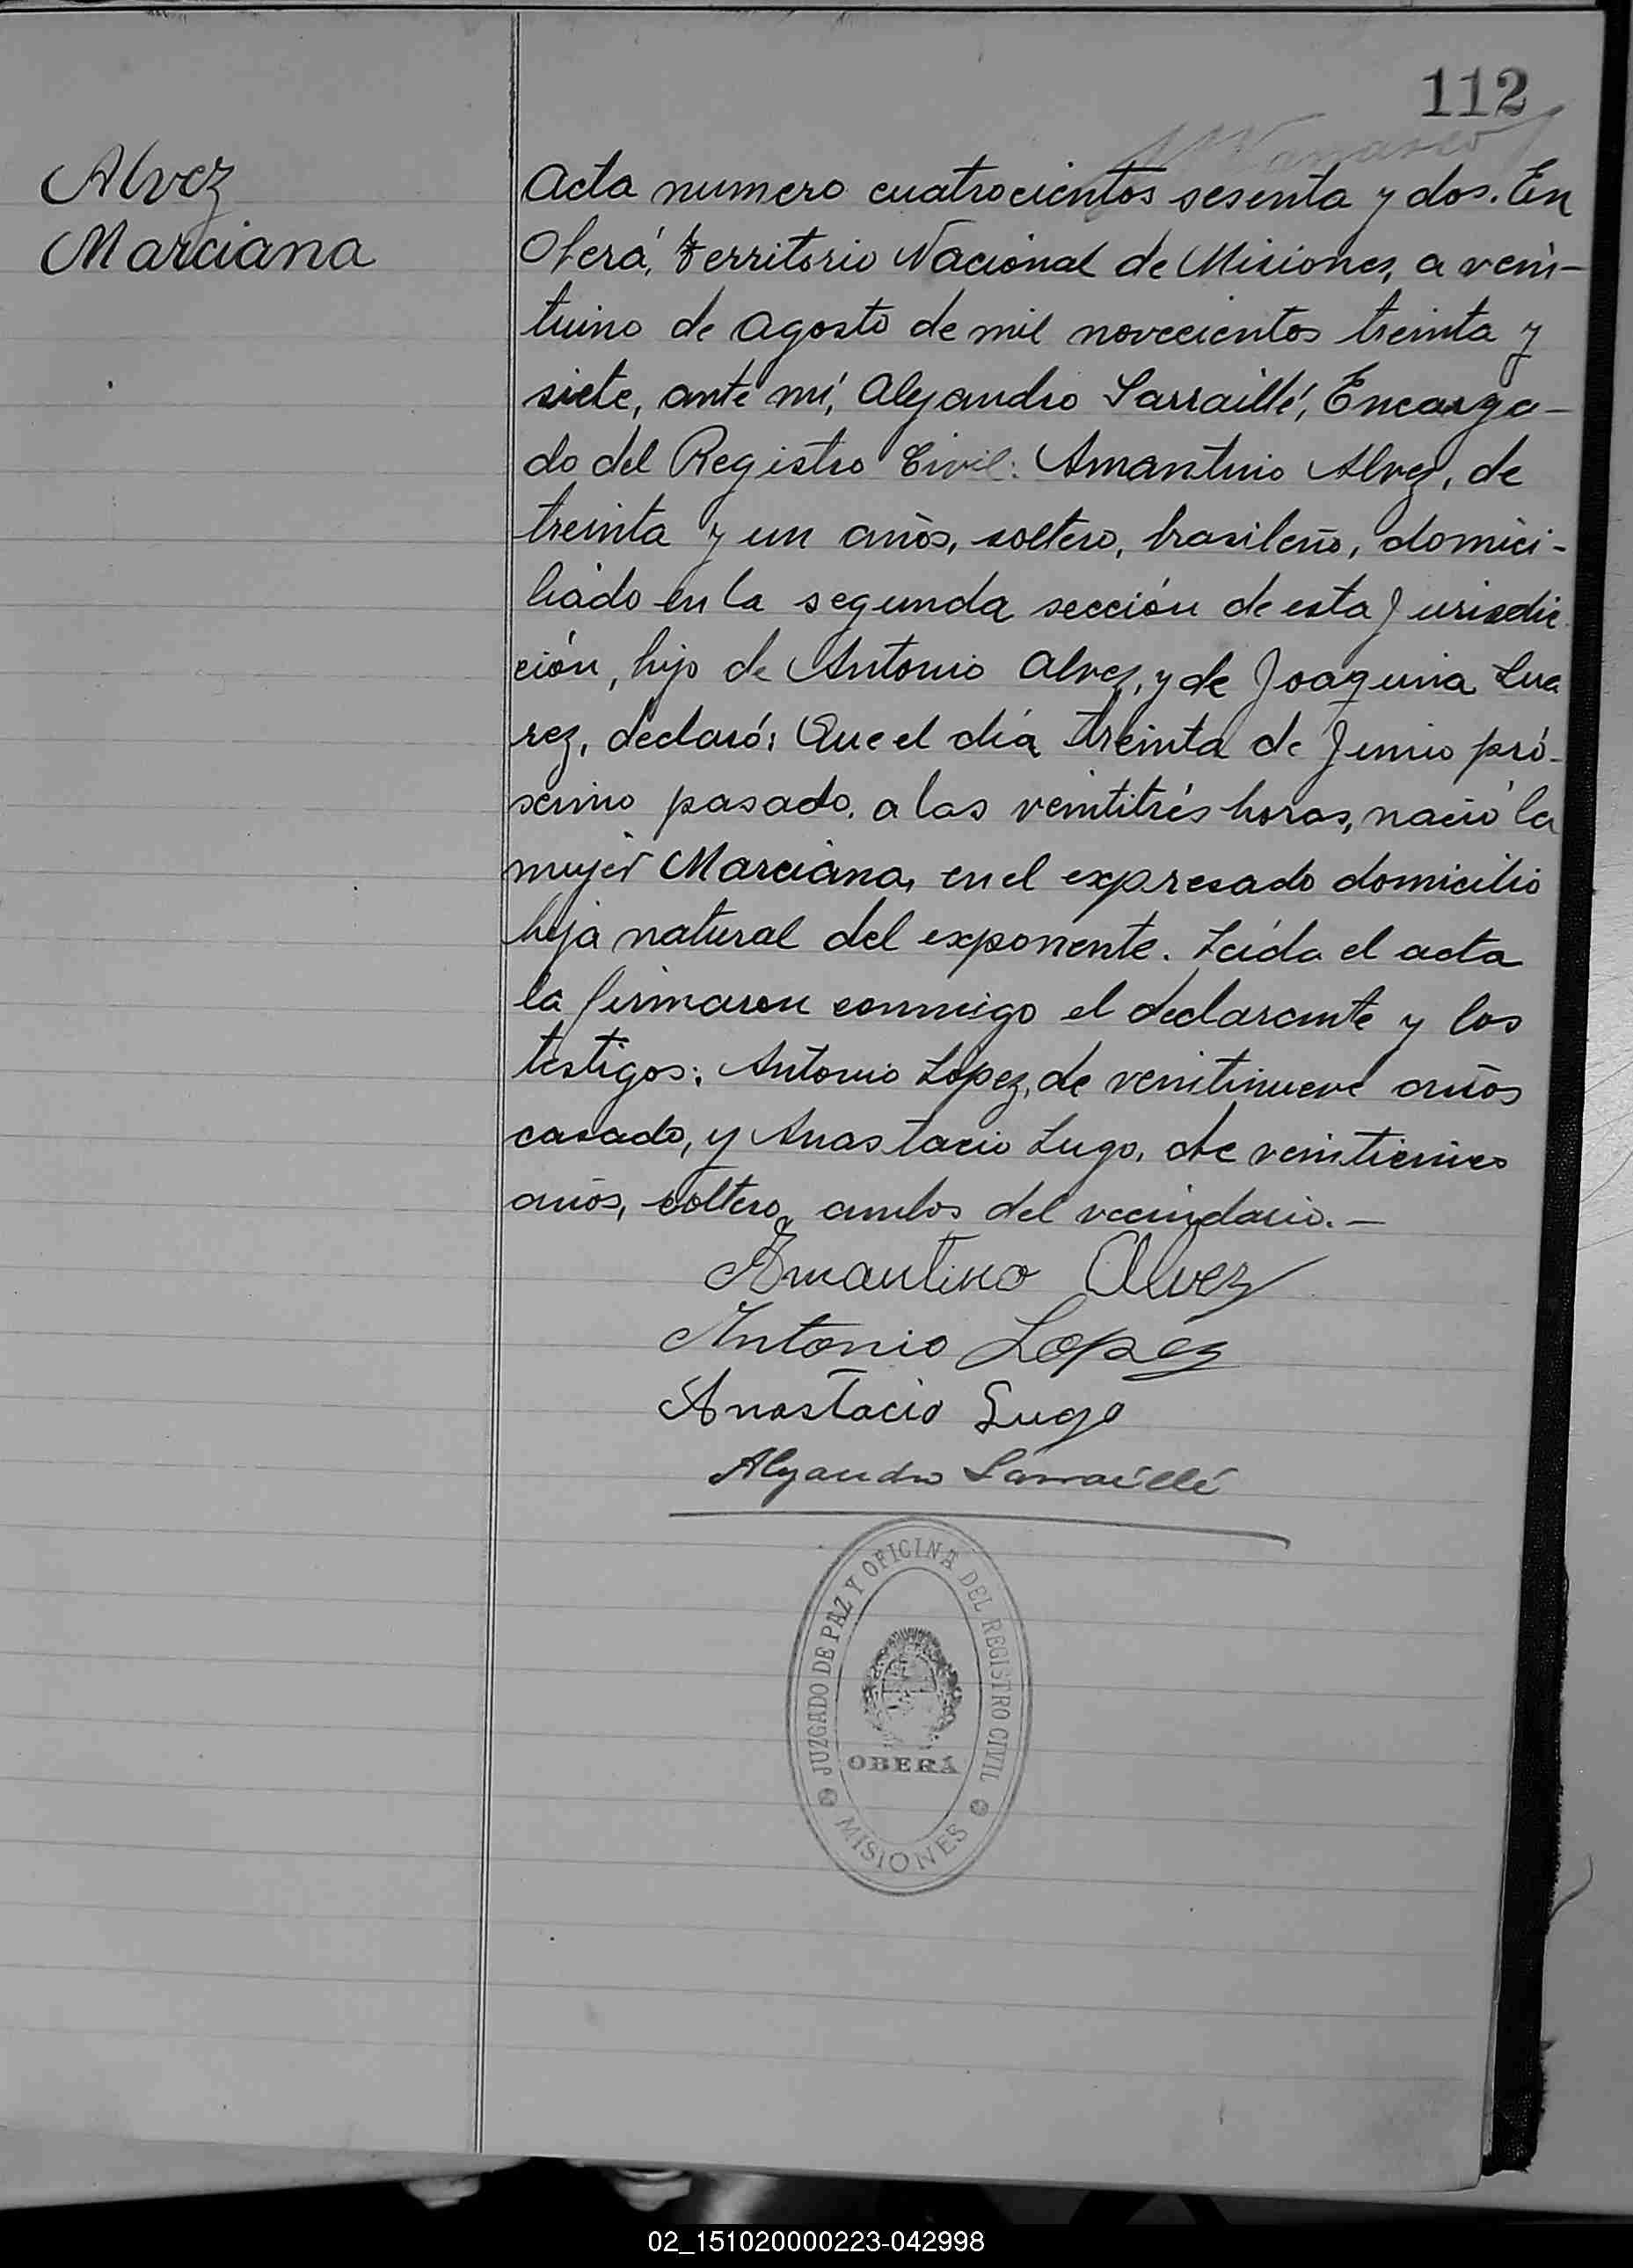 112
Alvez
Marciana
Acta numero cuatrocientos sesenta y dos. En
Oberá, Territorio Nacional de Misiones, a vein-
tiuno de agosto de mil novecientos treinta y
siete, ante mí, Alejandro Sarraillé, Encarga-
do del Registro Civil: Amantino Alvez, de
treinta y un años, soltero, brasileño, domici-
liado en la segunda sección de esta Jurisdic
ción, hijo de Antonio Alvez, y de Joaquina
rez, declaró: Que el día treinta de Junio pró-
ximo pasado, a las veintitrés horas, nació la
mujer Marciana, en el expresado domicilio
hija natural del exponente. Leída el acta
la firmaron conmigo el declarante y los
testigos: Antonio Lopez, de veintinueve años
casado, y Anastacio Lugo, de veinticinco
años, soltero, ambos del vecindario.—
Amantino Alvez
Antonio Lopez
Anastacio Lugo
Alejandro Sarraillé
JUZGADO DE PAZ Y OFICINA DEL REGISTRO CIVIL
OBERÁ
MISIONES
02_151020000223-042998